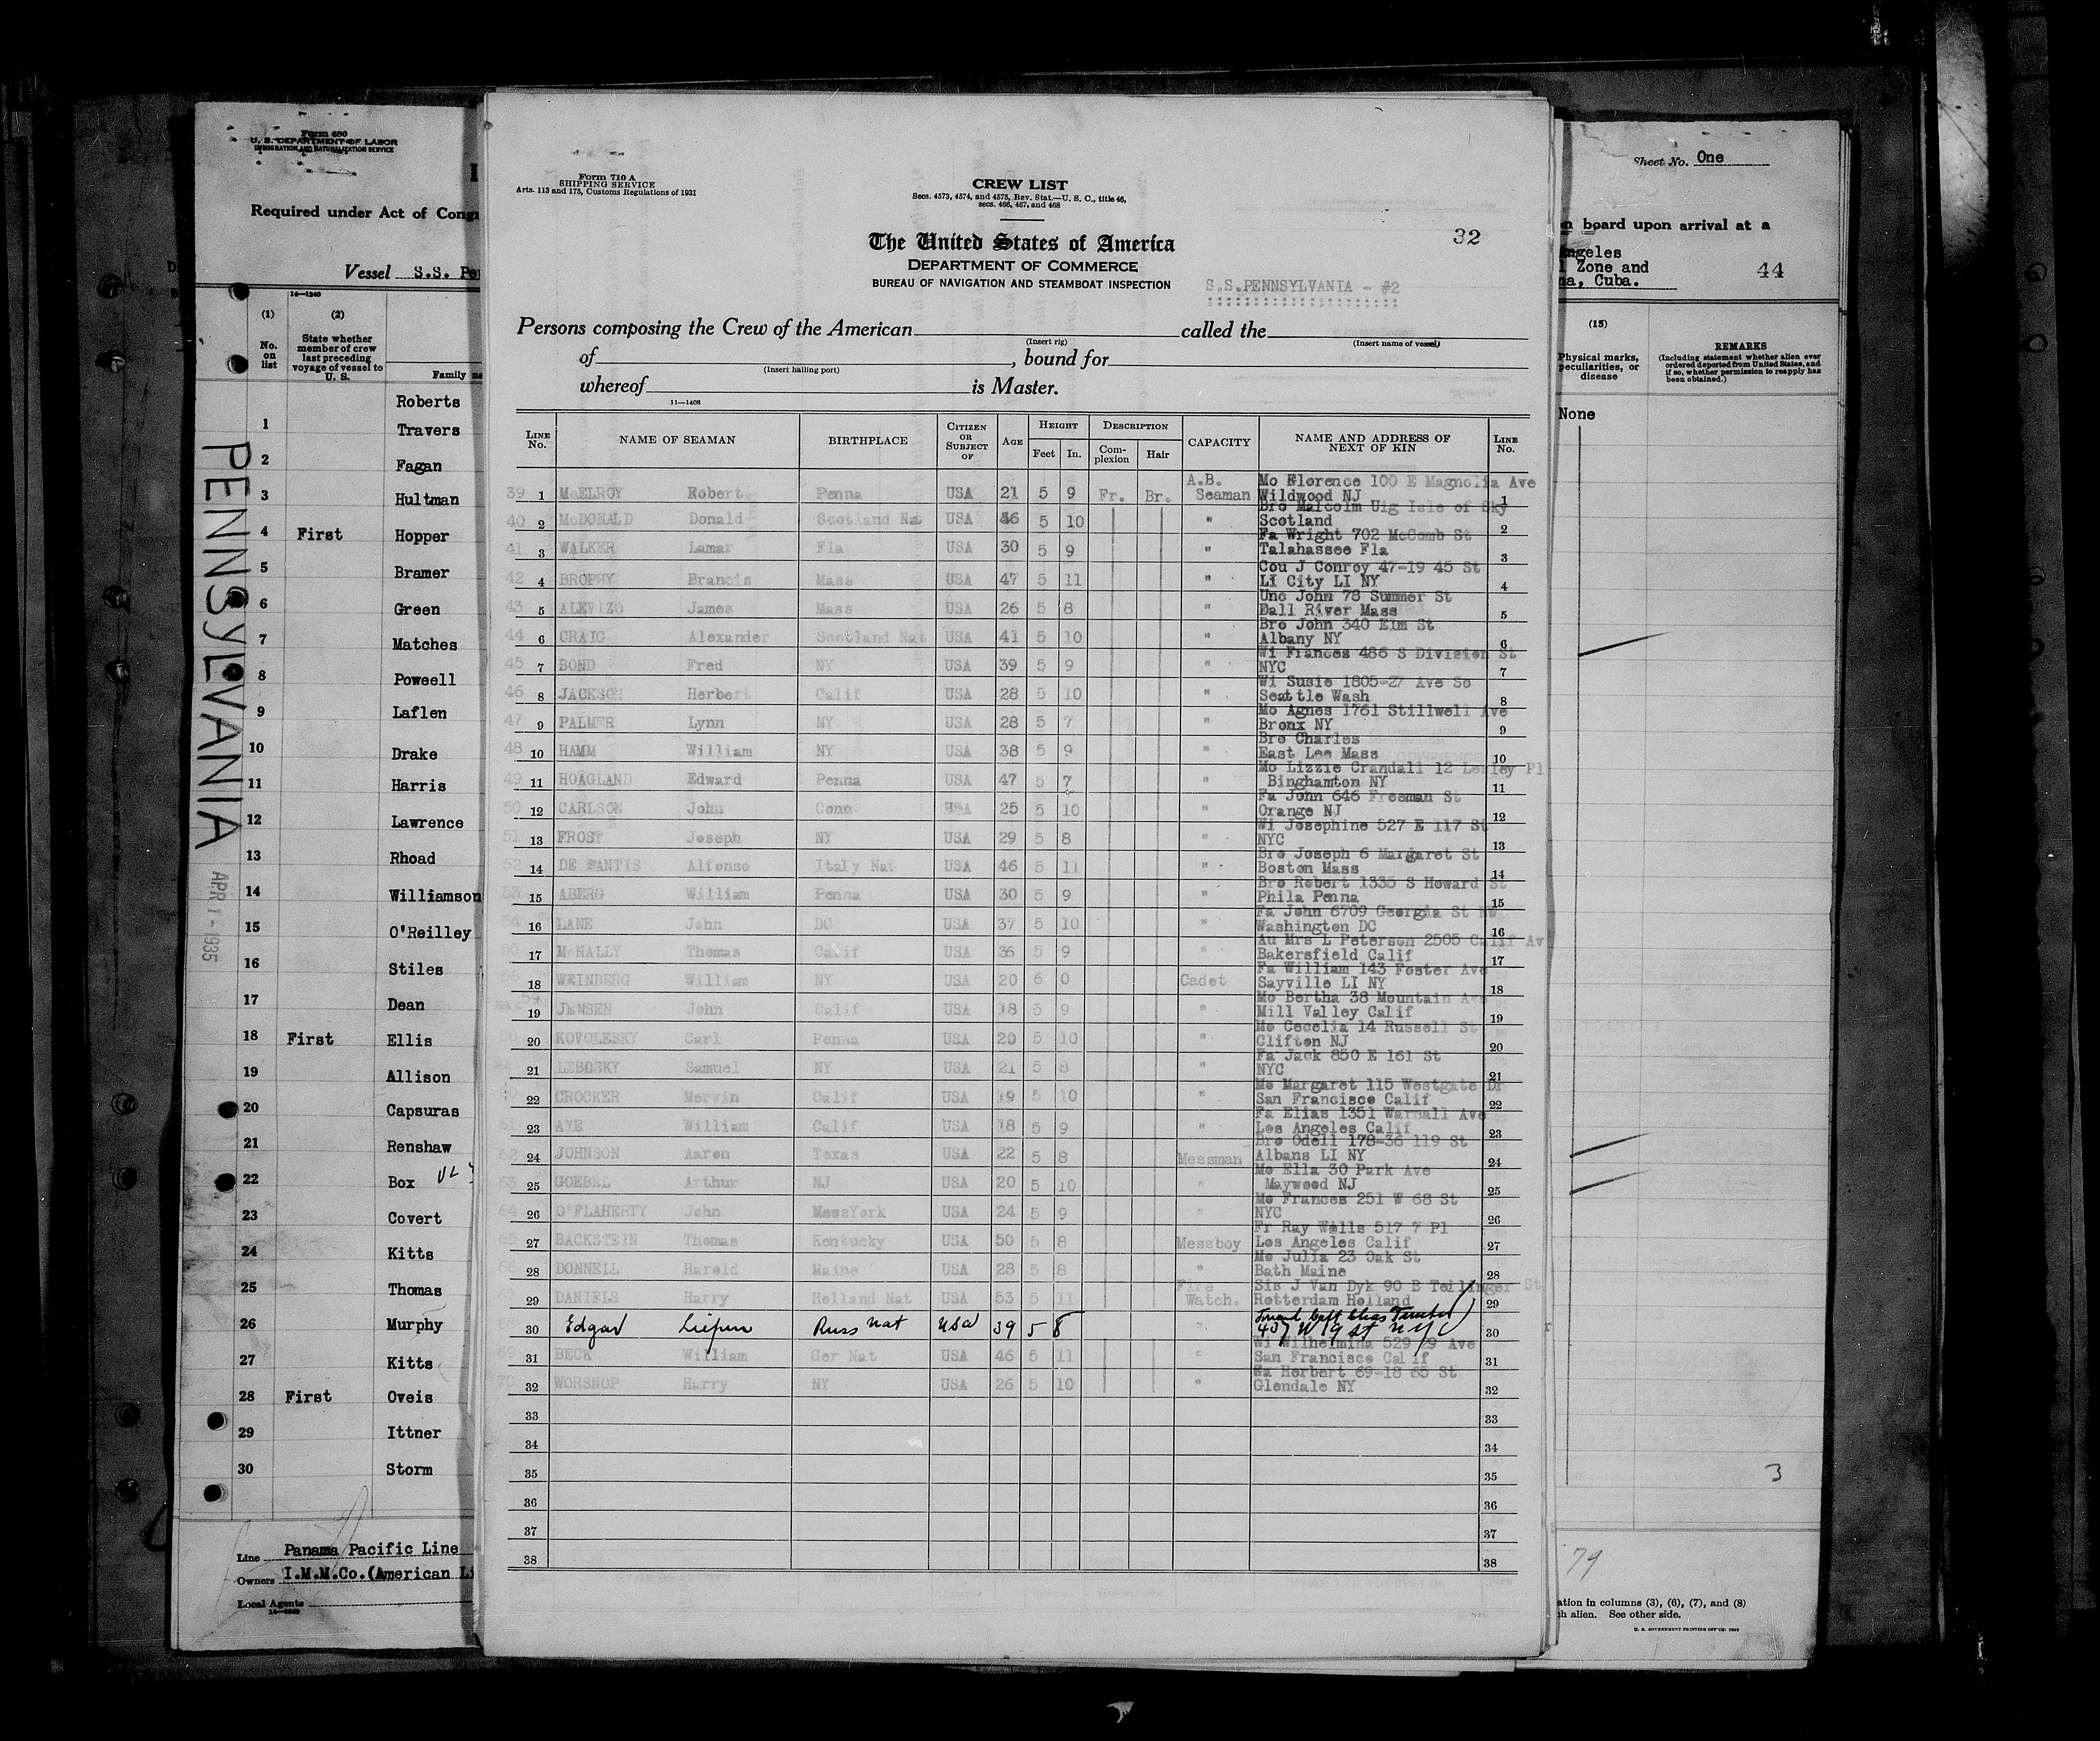 Form 680
U. S. DEPARTMENT OF LABOR
IMMIGRATION AND NATURALIZATION SERVICE
Required under Act of Cong
Vessel S.S. Pe
14—1240
(1) (2)
No. on list
State whether member of crew last preceding voyage of vessel to U. S.
Family na
Roberts
1 Travers
2 Fagan
3 Hultman
4 First Hopper
5 Bramer
6 Green
7 Matches
8 Poweell
9 Laflen
10 Drake
11 Harris
12 Lawrence
13 Rhoad
14 Williamson
15 O'Reilley
16 Stiles
17 Dean
18 First Ellis
19 Allison
20 Capsuras
21 Renshaw
22 Box
23 Covert
24 Kitts
25 Thomas
26 Murphy
27 Kitts
28 First Oveis
29 Ittner
30 Storm
PENNSYLVANIA
APR 1 - 1935
Line Panama Pacific Line
Owners I.M.M.Co.(American Li
Local Agents
14—1240
Form 710 A
SHIPPING SERVICE
Arts. 113 and 175, Customs Regulations of 1931
CREW LIST
Secs. 4573, 4574, and 4575, Rev. Stat.—U. S. C., title 46,
secs. 466, 467, and 468
32
The United States of America
DEPARTMENT OF COMMERCE
BUREAU OF NAVIGATION AND STEAMBOAT INSPECTION
S.S.PENNSYLVANIA - #2
Persons composing the Crew of the American called the
(Insert rig) (Insert name of vessel)
of , bound for
(Insert hailing port)
whereof is Master.
11—1408
LINE No. NAME OF SEAMAN BIRTHPLACE CITIZEN OR SUBJECT OF AGE HEIGHT Feet In. DESCRIPTION Complexion Hair CAPACITY NAME AND ADDRESS OF NEXT OF KIN LINE No.
39 1 McELROY Robert Penna USA 21 5 9 Fr. Br. A.B. Seaman Mo Florence 100 E Magnolia Ave Wildwood NJ 1
40 2 McDONALD Donald Scotland Nat USA 46 5 10 " Bro Malcolm Uig Isle of Sky Scotland 2
41 3 WALKER Lamar Fla USA 30 5 9 " Fa Wright 702 McComb St Talahassee Fla 3
42 4 BROPHY Brancis Mass USA 47 5 11 " Cou J Conroy 47-19 45 St LI City LI NY 4
43 5 ALEVIZO James Mass USA 26 5 8 " Unc John 78 Summer St Dall River Mass 5
44 6 CRAIG Alexander Scotland Nat USA 41 5 10 " Bro John 340 Elm St Albany NY 6
45 7 BOND Fred NY USA 39 5 9 " Wi Frances 486 S Division St NYC 7
46 8 JACKSON Herbert Calif USA 28 5 10 " Wi Susie 1805-27 Ave So Seattle Wash 8
47 9 PALMER Lynn NY USA 28 5 7 " Mo Agnes 1761 Stillwell Ave Bronx NY 9
48 10 HAMM William NY USA 38 5 9 " Bro Charles East Lee Mass 10
49 11 HOAGLAND Edward Penna USA 47 5 7 " Mo Lizzie Crandall 12 Lesley Pl Binghamton NY 11
50 12 CARLSON John Conn USA 25 5 10 " Fa John 646 Freeman St Orange NJ 12
51 13 FROST Joseph NY USA 29 5 8 " Wi Josephine 527 E 117 St NYC 13
52 14 DE SANTIS Alfonso Italy Nat USA 46 5 11 " Bro Joseph 6 Margaret St Boston Mass 14
53 15 ABERG William Penna USA 30 5 9 " Bro Robert 1335 S Howard St Phila Penna 15
54 16 LANE John DC USA 37 5 10 " Fa John 6709 Georgia St NW Washington DC 16
55 17 McNALLY Thomas Calif USA 36 5 9 " Au Mrs L Peterson 2505 Calif Av Bakersfield Calif 17
18 WEINBERG William NY USA 20 6 0 Cadet Fa William 143 Foster Ave Sayville LI NY 18
19 JENSEN John Calif USA 18 5 9 " Mo Bertha 38 Mountain Ave Mill Valley Calif 19
20 KOVOLESKY Carl Penna USA 20 5 10 " Mo Cecelia 14 Russell St Clifton NJ 20
21 LEBOSKY Samuel NY USA 21 5 8 " Fa Jack 850 E 161 St NYC 21
22 CROCKER Mervin Calif USA 19 5 10 " Mo Margaret 115 Westgate Dr San Francisco Calif 22
23 AYE William Calif USA 18 5 9 " Fa Elias 1351 Warnall Ave Los Angeles Calif 23
62 24 JOHNSON Aaron Texas USA 22 5 8 Messman Bro Odell 178-36 119 St Albans LI NY 24
63 25 GOEBEL Arthur NJ USA 20 5 10 " Mo Ella 30 Park Ave Maywood NJ 25
64 26 O'FLAHERTY John NewYork USA 24 5 9 " Mo Frances 251 W 68 St NYC 26
65 27 BACKSTEIN Thomas Kentucky USA 50 5 8 Messboy Fr Ray Walls 517 7 Pl Los Angeles Calif 27
66 28 DONNELL Harold Maine USA 28 5 8 " Mo Julia 23 Oak St Bath Maine 28
67 29 DANIELS Harry Holland Nat USA 53 5 11 Fire Watch. Sis J Van Dyk 90 B Teilinger St Rotterdam Holland 29
30 Edgar Liepin Russ Nat USA 39 5 8 " 457 W 19 St NYC 30
69 31 BECK William Ger Nat USA 46 5 11 " Wi Wilhelmina 529 29 Ave San Francisco Calif 31
70 32 WORSNOP Harry NY USA 26 5 10 " Fa Herbert 69-18 65 St Glendale NY 32
33 33
34 34
35 35
36 36
37 37
38 38
Sheet No. One
n board upon arrival at a
ngeles
l Zone and
na, Cuba.
44
(15)
Physical marks, peculiarities, or disease
REMARKS
(Including statement whether alien ever ordered deported from United States, and if so, whether permission to reapply has been obtained.)
None
3
79
ation in columns (3), (6), (7), and (8)
ch alien. See other side.
U. S. GOVERNMENT PRINTING OFFICE